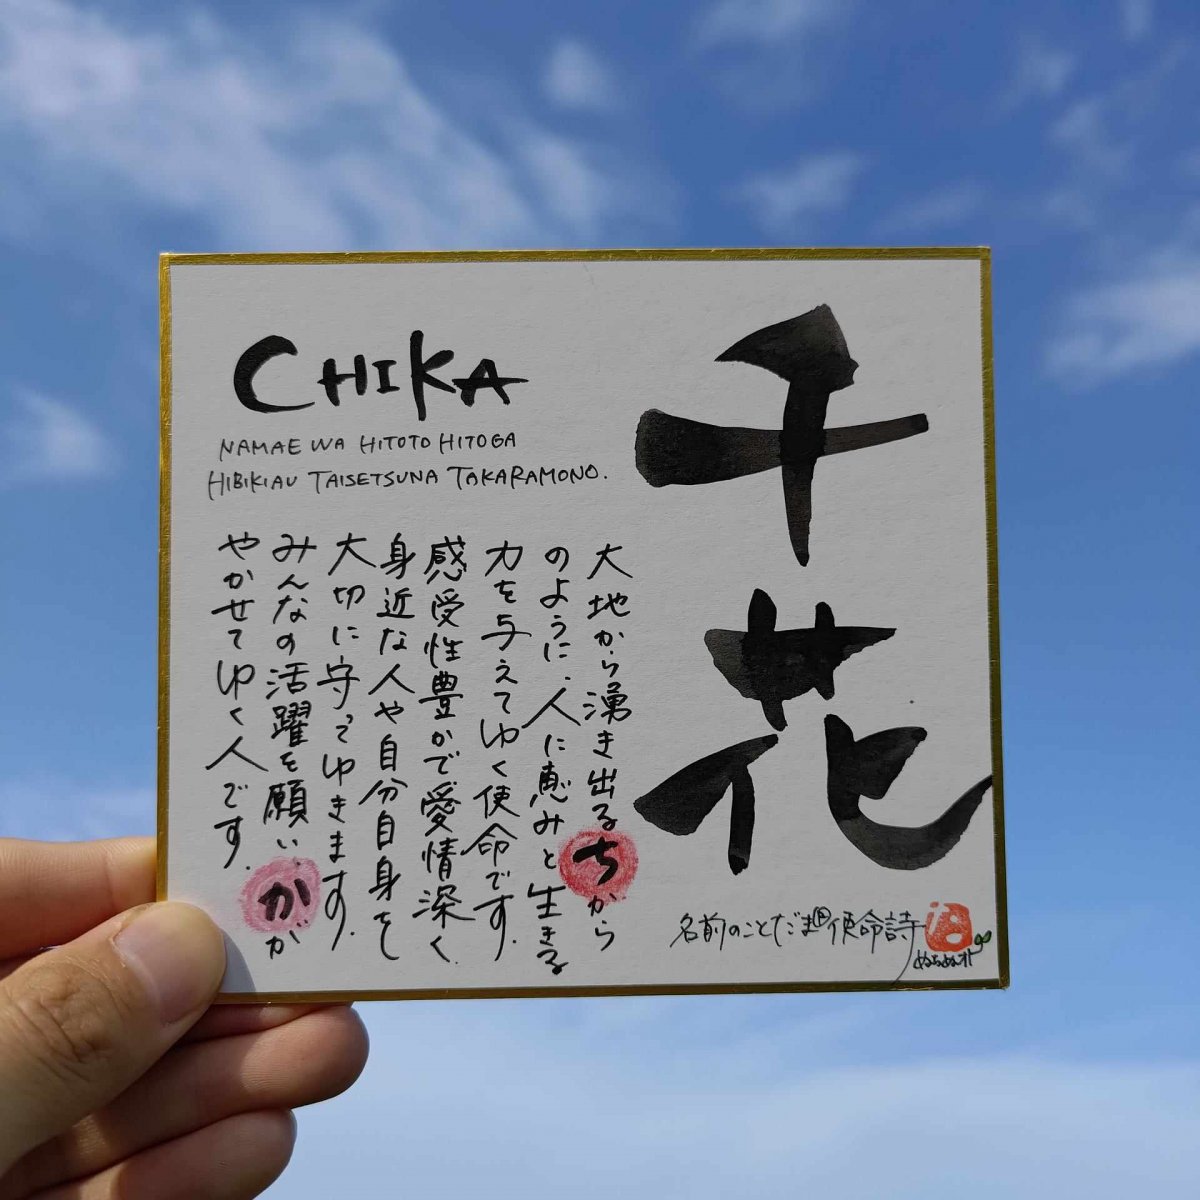 千花
CHIKA
NAMAE WA HITOTO HITOGA
HIBIKIAU TAISETSUNA TAKARAMONO.
大地から湧き出るちから
のように、人に恵みと生きる
力を与えてゆく使命です。
感受性豊かで愛情深く
身近な人や自分自身を
大切に守ってゆきます。
みんなの活躍を願い、かが
やかせてゆく人です。
名前のことだま®使命詩